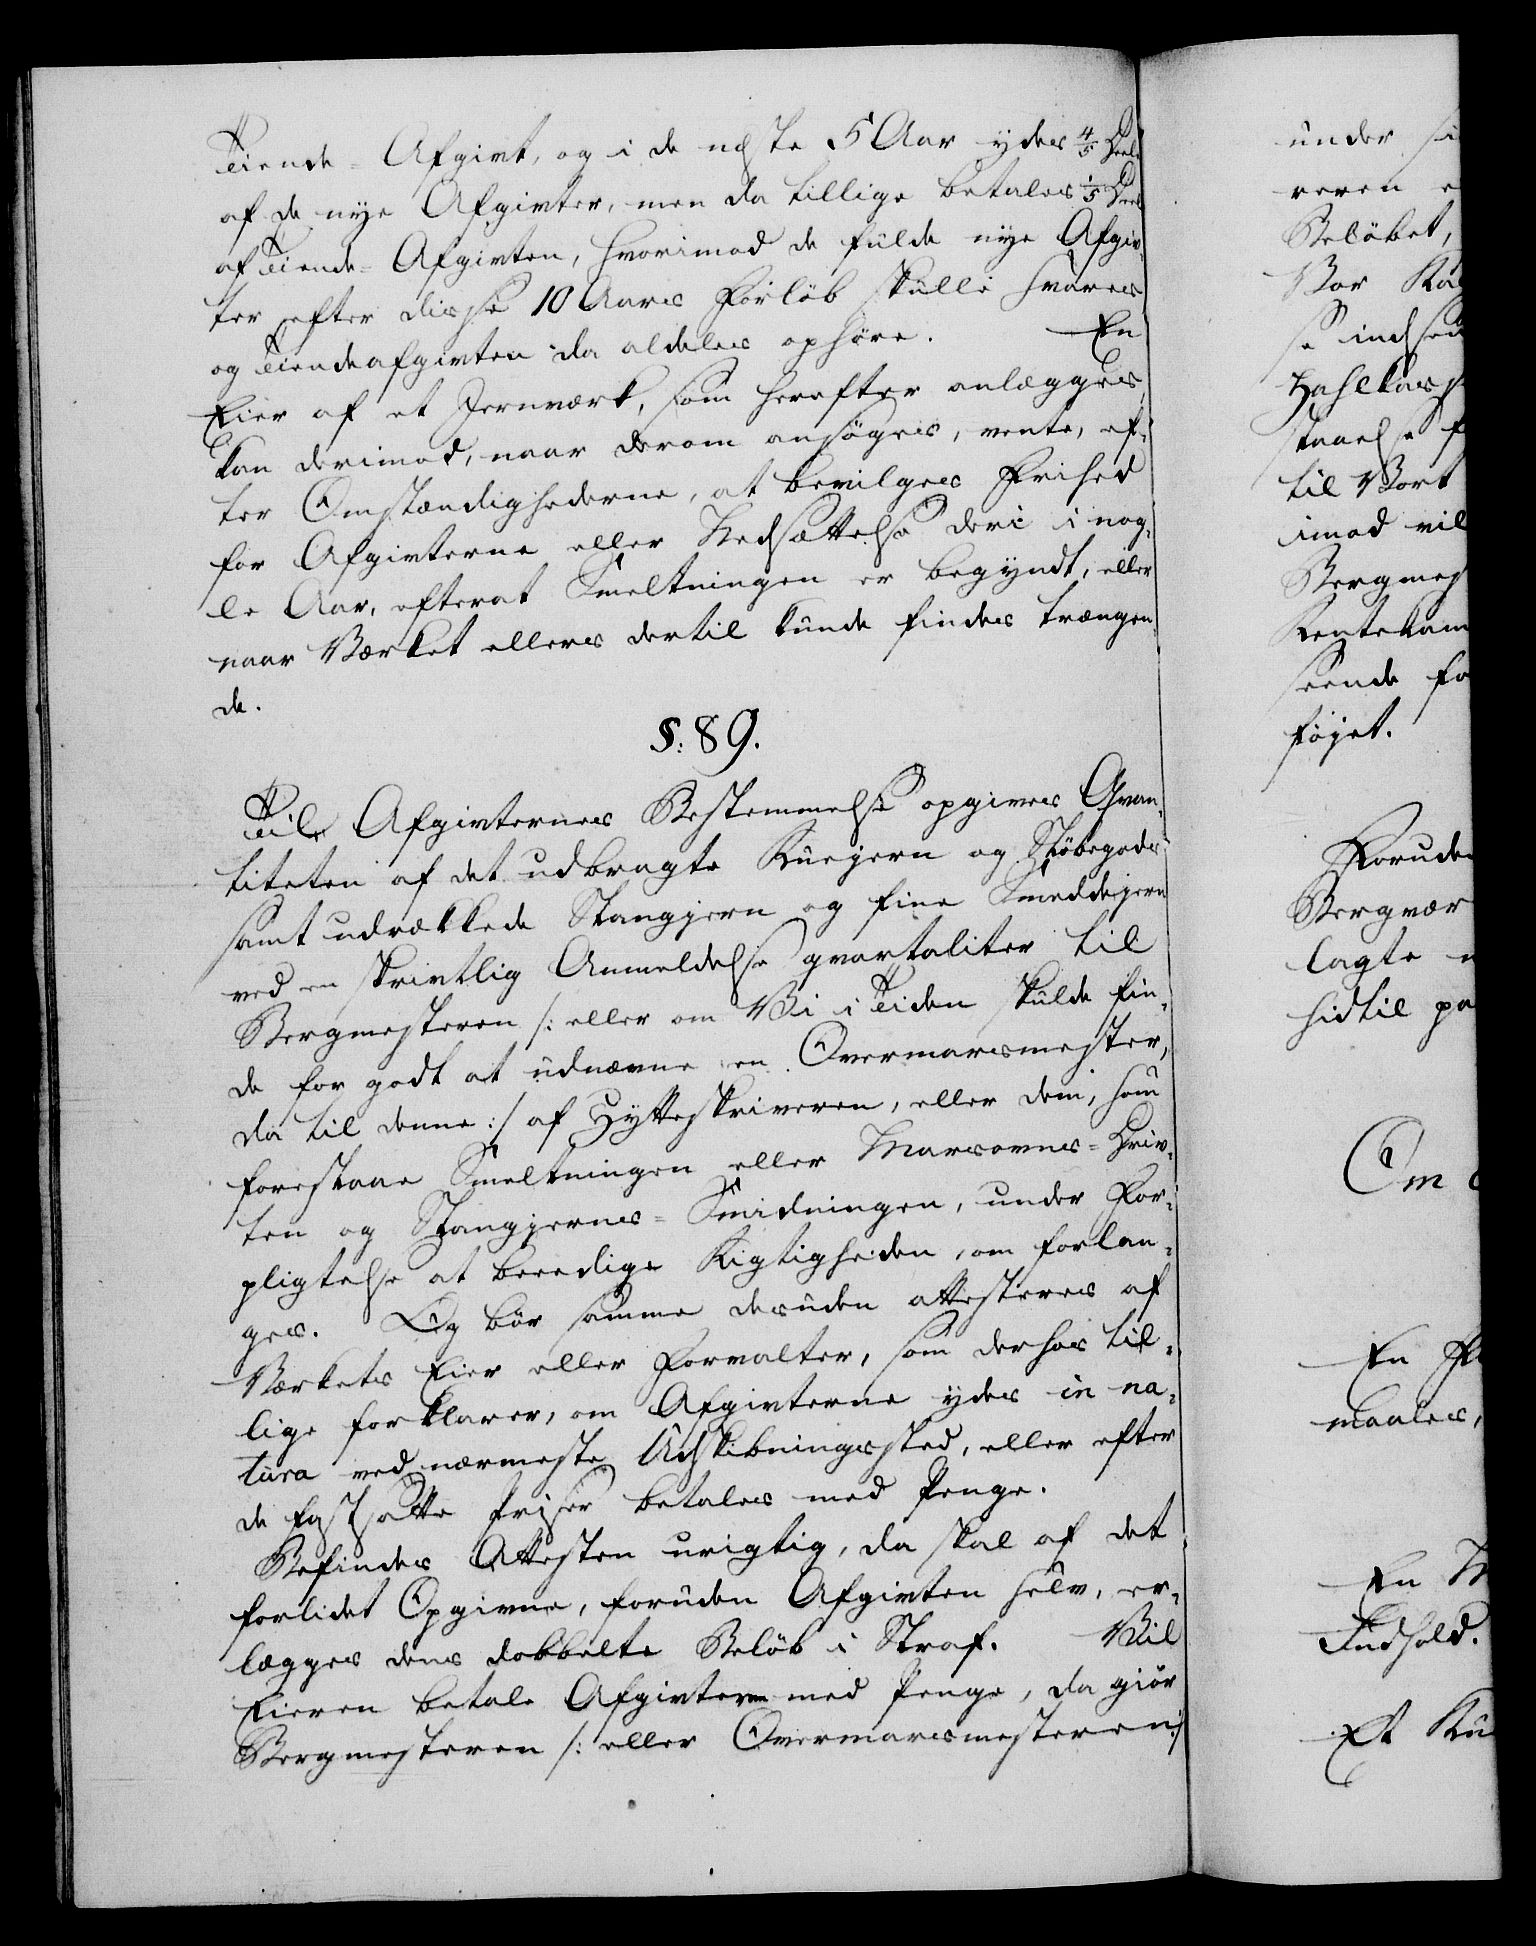 Tiende-Afgivt, og i de neste 5 Aar ydes 4/5 Deel
af de nye Afgivter, men da tillige betales 1/5 Deel
af Tiende-Afgivten, hvorimod de fulde nye Afgiv-
ter efter disse 10 Aars Forløb skulle svares
og Tiendeafgivten da aldeles ophøre. En
Eier af et Jernværk, som herefter anlægges,
kan derimod, naar derom ansøges, vente, ef-
ter Omstændighederne, at bevilges Frihed
for Afgivterne eller Nedsættelse deri i nog-
le Aar, efterat Smeltningen er begyndt, eller
naar Værket ellers dertil kunde findes trængen-
de.
§: 89.
Til Afgivternes Bestemmelse opgives Qvan-
titeten af det udbragte Ruejern og Støbegods
samt udrækkede Stangjern og fine Smeddejern
ved en skrivtlig Anmeldelse qvartaliter til
Bergmesteren /: eller om Vi i Tiden skulde fin-
de for godt at udnævne en Overmarsmester,
da til denne :/ af Hytteskriveren, eller dem, som
forestaae Smeltningen eller Marsovnes-Driv-
ten og Stangjernes-Smidningen, under For-
pligtelse at beedige Rigtigheden, om forlan-
ges. Og bør samme desuden attesteres af
Værkets Eier eller Forvalter, som derhos til-
lige forklarer, om Afgivterne ydes in na-
tura ved nærmeste Udskibningssted, eller efter
de fastsatte Priser betales med Penge.
Befindes Attesten urigtig, da skal af det
forlidet Opgivne, foruden Afgivten selv, er-
lægges dens dobbelte Beløb i Straf. Vil
Eieren betale Afgivterne med Penge, da giør
Bergmesteren /: eller Overmarsmesteren :/
under
reren
Beløbet,
Vor
se
til Vort
imod vil
føjet.
Bergvær
lagte
hidtil
Om
En
maales,
En
Indhold.
Et